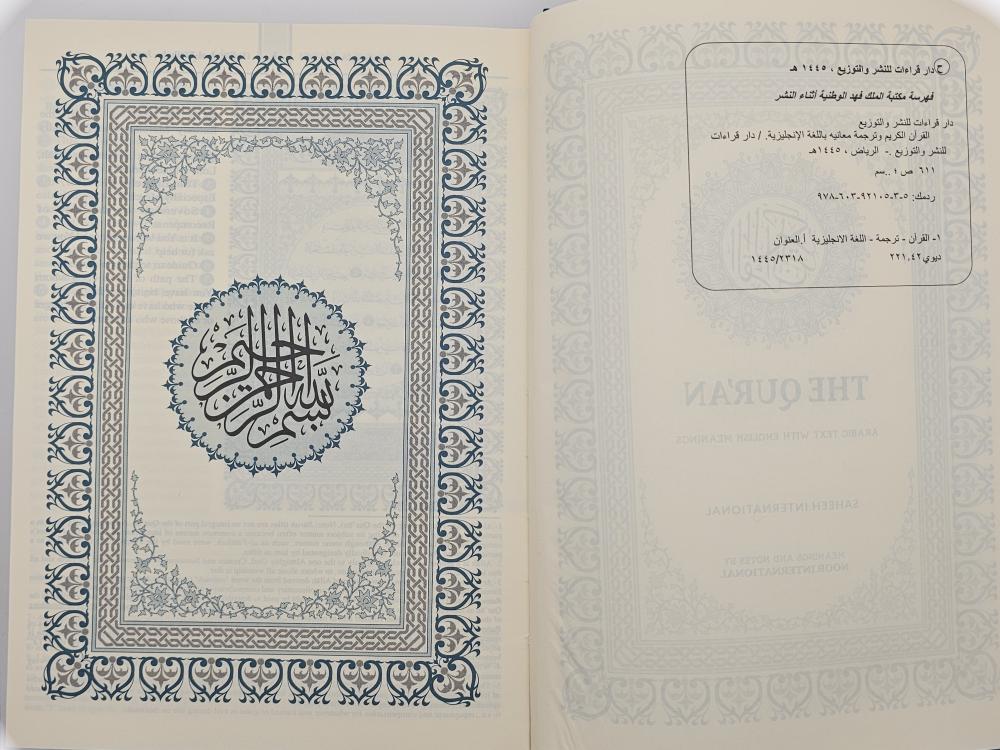 بسم الله الرحمن الرحيم
ح دار قراءات للنشر والتوزيع ، ١٤٤٥ هـ
فهرسة مكتبة الملك فهد الوطنية أثناء النشر
دار قراءات للنشر والتوزيع
القرآن الكريم وترجمة معانيه باللغة الإنجليزية. / دار قراءات
للنشر والتوزيع .- الرياض ، ١٤٤٥هـ
٦١١ ص ؛ ..سم
ردمك: ٥-٣-٩٢١٠٥-٦٠٣-٩٧٨
١- القرآن - ترجمة - اللغة الانجليزية أ.العنوان
ديوي ٢٢١,٤٢ ١٤٤٥/٢٣١٨
THE QUR'AN
ARABIC TEXT WITH ENGLISH MEANINGS
SAHEEH INTERNATIONAL
MEANINGS AND NOTES BY
NOOR INTERNATIONAL